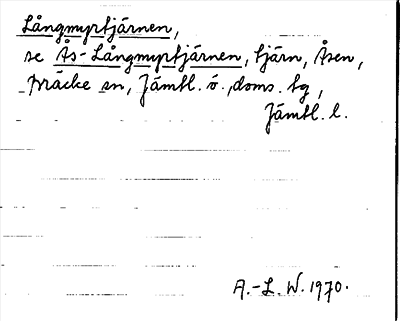 Långmyrtjärnen,
se Ås-Långmyrtjärnen, tjärn, Åsen,
Bräcke sn, Jämtl. ö. doms. tg,
Jämtl. l.
A.-L. W. 1970.